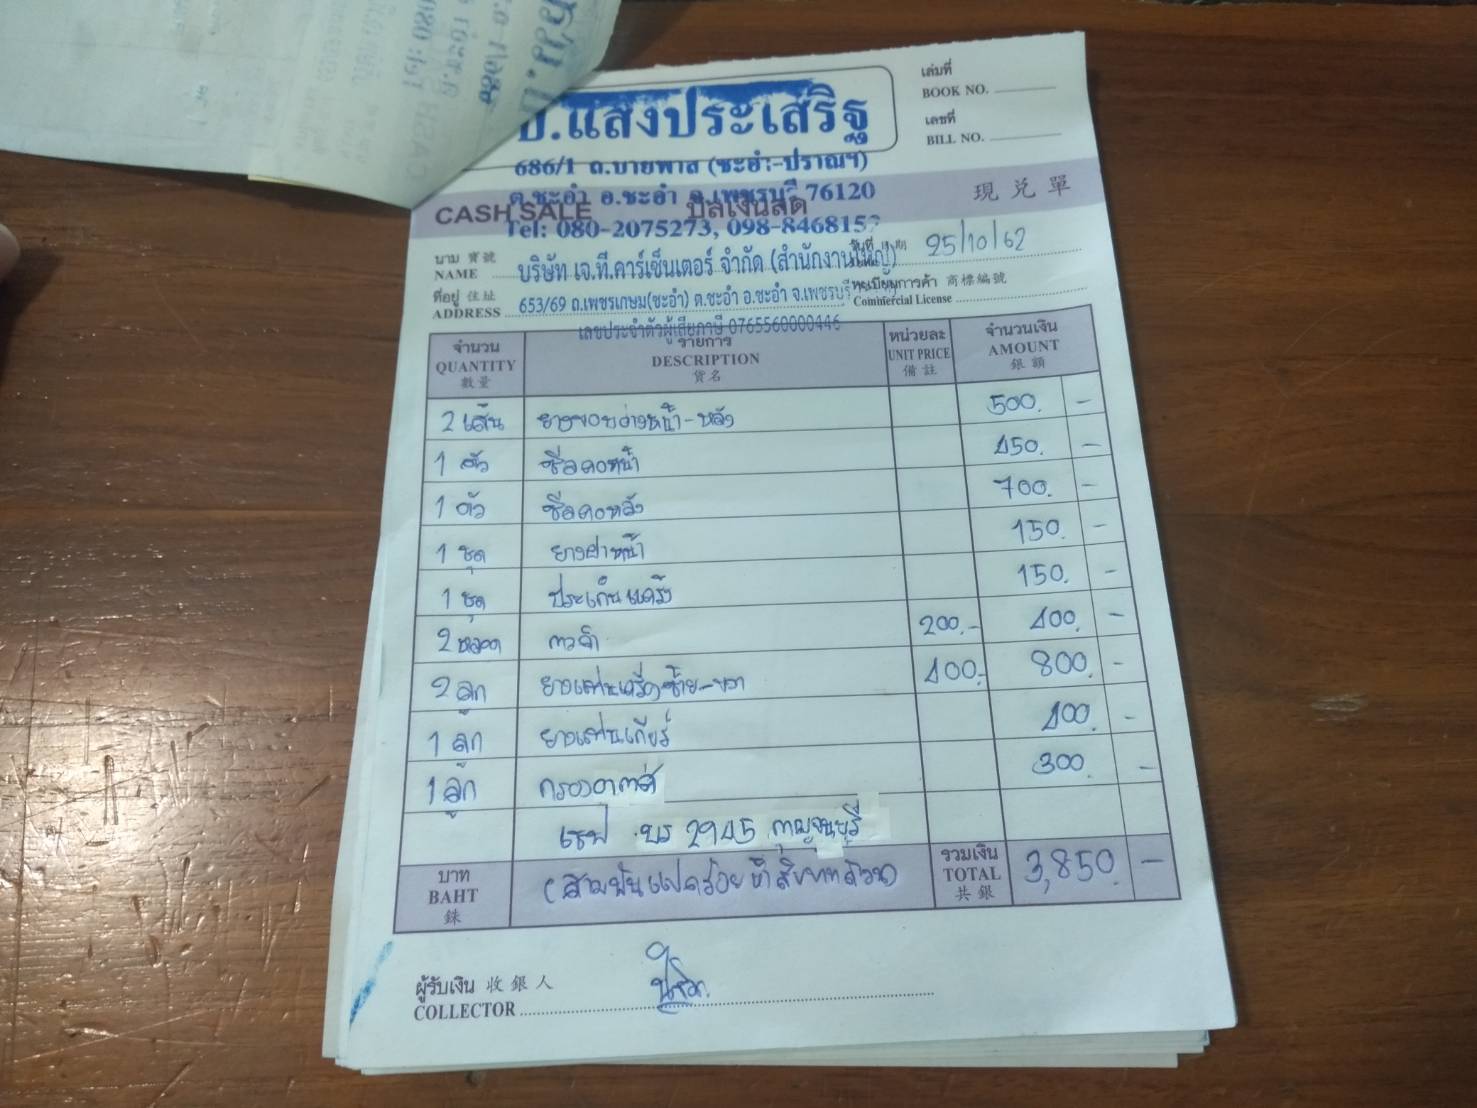 ป.แสงประเสริฐ
686/1 ถ.บายพาส (ชะอำ-ปราณฯ)
ต.ชะอำ อ.ชะอำ จ.เพชรบุรี 76120
Tel: 080-2075273, 098-846815
เล่มที่
BOOK NO.
เลขที่
BILL NO.
CASH SALE บิลเงินสด 現兑單
นาม 寶號
NAME บริษัท เจ.ที.คาร์เซ็นเตอร์ จำกัด (สำนักงานใหญ่)
วันที่ 25/10/62
ที่อยู่ 住址
ADDRESS 653/69 ถ.เพชรเกษม(ชะอำ) ต.ชะอำ อ.ชะอำ จ.เพชรบุรี
ทะเบียนการค้า 商標編號
Commercial License
เลขประจำตัวผู้เสียภาษี 0765560000446
จำนวน รายการ หน่วยละ จำนวนเงิน
QUANTITY DESCRIPTION UNIT PRICE AMOUNT
數量 貨名 備註 銀額
2 เส้น ยางขอบอ่างหน้า-หลัง 500. -
1 ตัว ซีลคอหน้า 450. -
1 ตัว ซีลคอหลัง 700. -
1 ชุด ยางฝาหน้า 150. -
1 ชุด ประเก็นแคร้ง 150. -
2 หลอด กาวดำ 200.- 400. -
2 ลูก ยางแท่นเครื่องซ้าย-ขวา 400.- 800. -
1 ลูก ยางแท่นเกียร์ 400. -
1 ลูก กรองอากาศ 300. -
เชฟ บร 2945 กาญจนบุรี
บาท
BAHT
銖
(สามพันแปดร้อยห้าสิบบาทถ้วน)
รวมเงิน
TOTAL 3,850. -
共銀
ผู้รับเงิน 收銀人
COLLECTOR